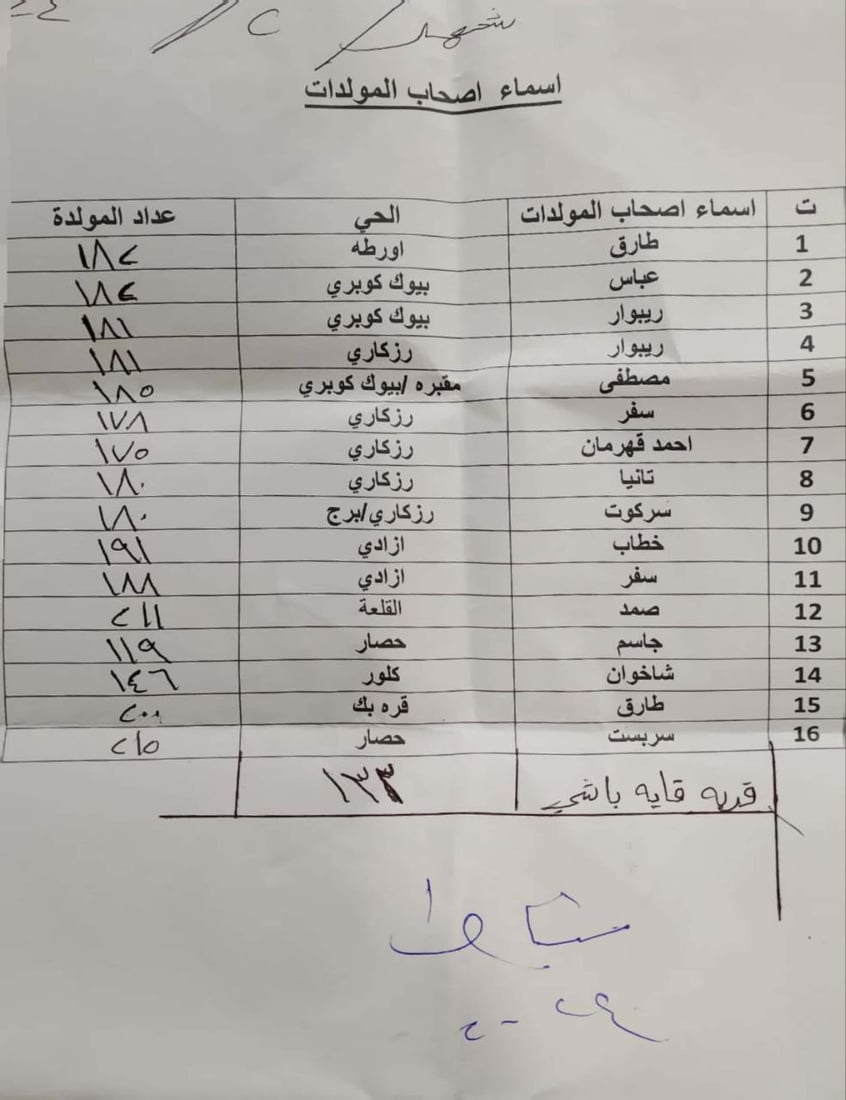 شهر / ٢ /
اسماء اصحاب المولدات
ت اسماء اصحاب المولدات الحي عداد المولدة
1 طارق اورطه ١٨٢
2 عباس بيوك كوبري ١٨٤
3 ريبوار بيوك كوبري ١٨١
4 ريبوار رزكاري ١٨١
5 مصطفى مقبره /بيوك كوبري ١٨٥
6 سفر رزكاري ١٧٨
7 احمد قهرمان رزكاري ١٧٥
8 تانيا رزكاري ١٨٠
9 سركوت رزكاري/برج ١٨٠
10 خطاب ازادي ١٩١
11 سفر ازادي ١٨٨
12 صمد القلعة ٢١١
13 جاسم حصار ١١٩
14 شاخوان كلور ١٤٦
15 طارق قره بك ٢٠٨
16 سربست حصار ٢١٥
قريه قايه باشي ١٣٣